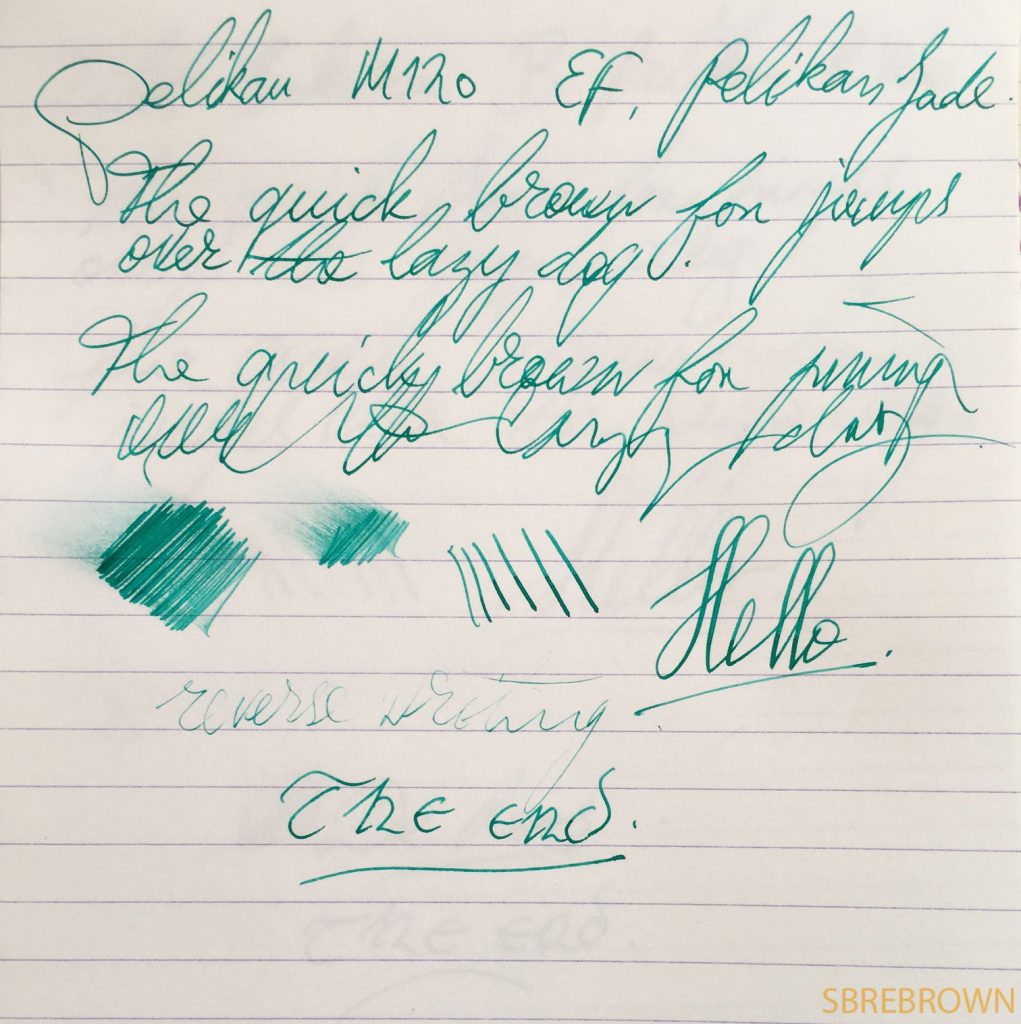 Pelikan M120 EF, Pelikan Jade.
The quick brown fox jumps
over the lazy dog.
The quick brown fox
over the lazy
Hello.
reverse writing.
The end.
The end.
SBREBROWN